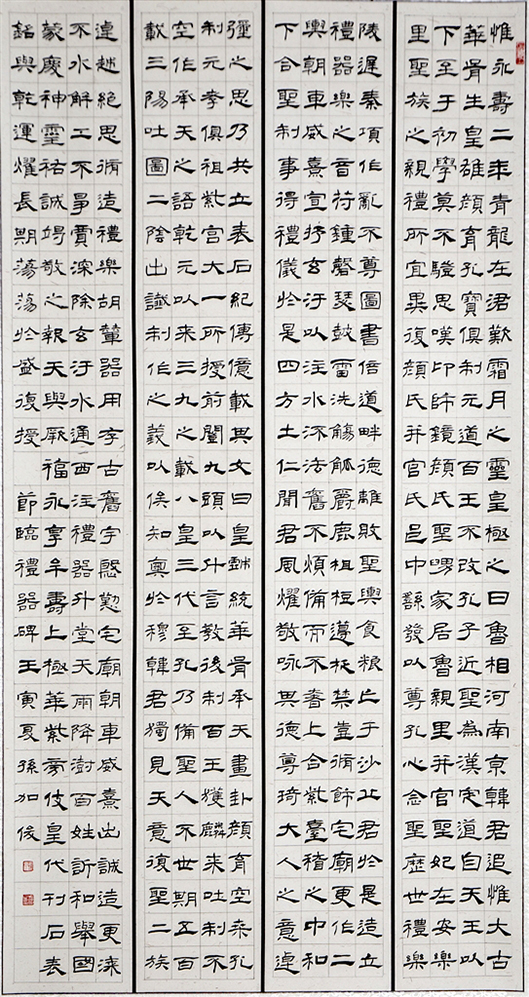 惟永壽二年青龍在涒歎霜月之靈皇極之日魯相河南京韓君追惟大古
華胥生皇雄顏育孔寶俱制元道百王不改孔子近聖為漢定道自天王以
下至于初學莫不驥思嘆卬師鏡顏氏聖舅家居魯親里并官聖妃在安樂
里聖族之親禮所宜異復顏氏并官氏邑中繇發以尊孔心念聖歷世禮樂
陵遲秦項作亂不尊圖書倍道畔德離敗聖輿食粮亡于沙丘君於是造立
禮器樂之音苻鍾磬瑟鼓雷洗觴觚爵鹿柤梪籩柉禁壺脩飾宅廟更作二
輿朝車威熹宣抒玄汙以注水流法舊不煩備而不奢上合紫臺稽之中和
下合聖制事得禮儀於是四方土仁聞君風燿敬咏其德尊琦大人之意逴
彌之思乃共立表石紀傳億載其文曰皇戲統華胥承天畫卦顏育空桒孔
制元孝俱祖紫宮大一所授前闓九頭以什言教後制百王獲麟來吐制不
空作承天之語乾元以來三九之載八皇三代至孔乃備聖人不世期五百
載三陽吐圖二陰出讖制作之義以俟知奧於穆韓君獨見天意復聖二族
逴越絕思脩造禮樂胡輦器用存古舊宇慇懃宅廟朝車威熹出誠造更漆
不水解工不爭賈深除玄汙水通西注禮器升堂天雨降澍百姓訢和舉國
蒙慶神靈祐誠竭敬之報天與厥福永享牟壽上極華紫旁伎皇代刊石表
銘與乾運燿長期蕩蕩於盛復授 節臨禮器碑壬寅夏孫加俊